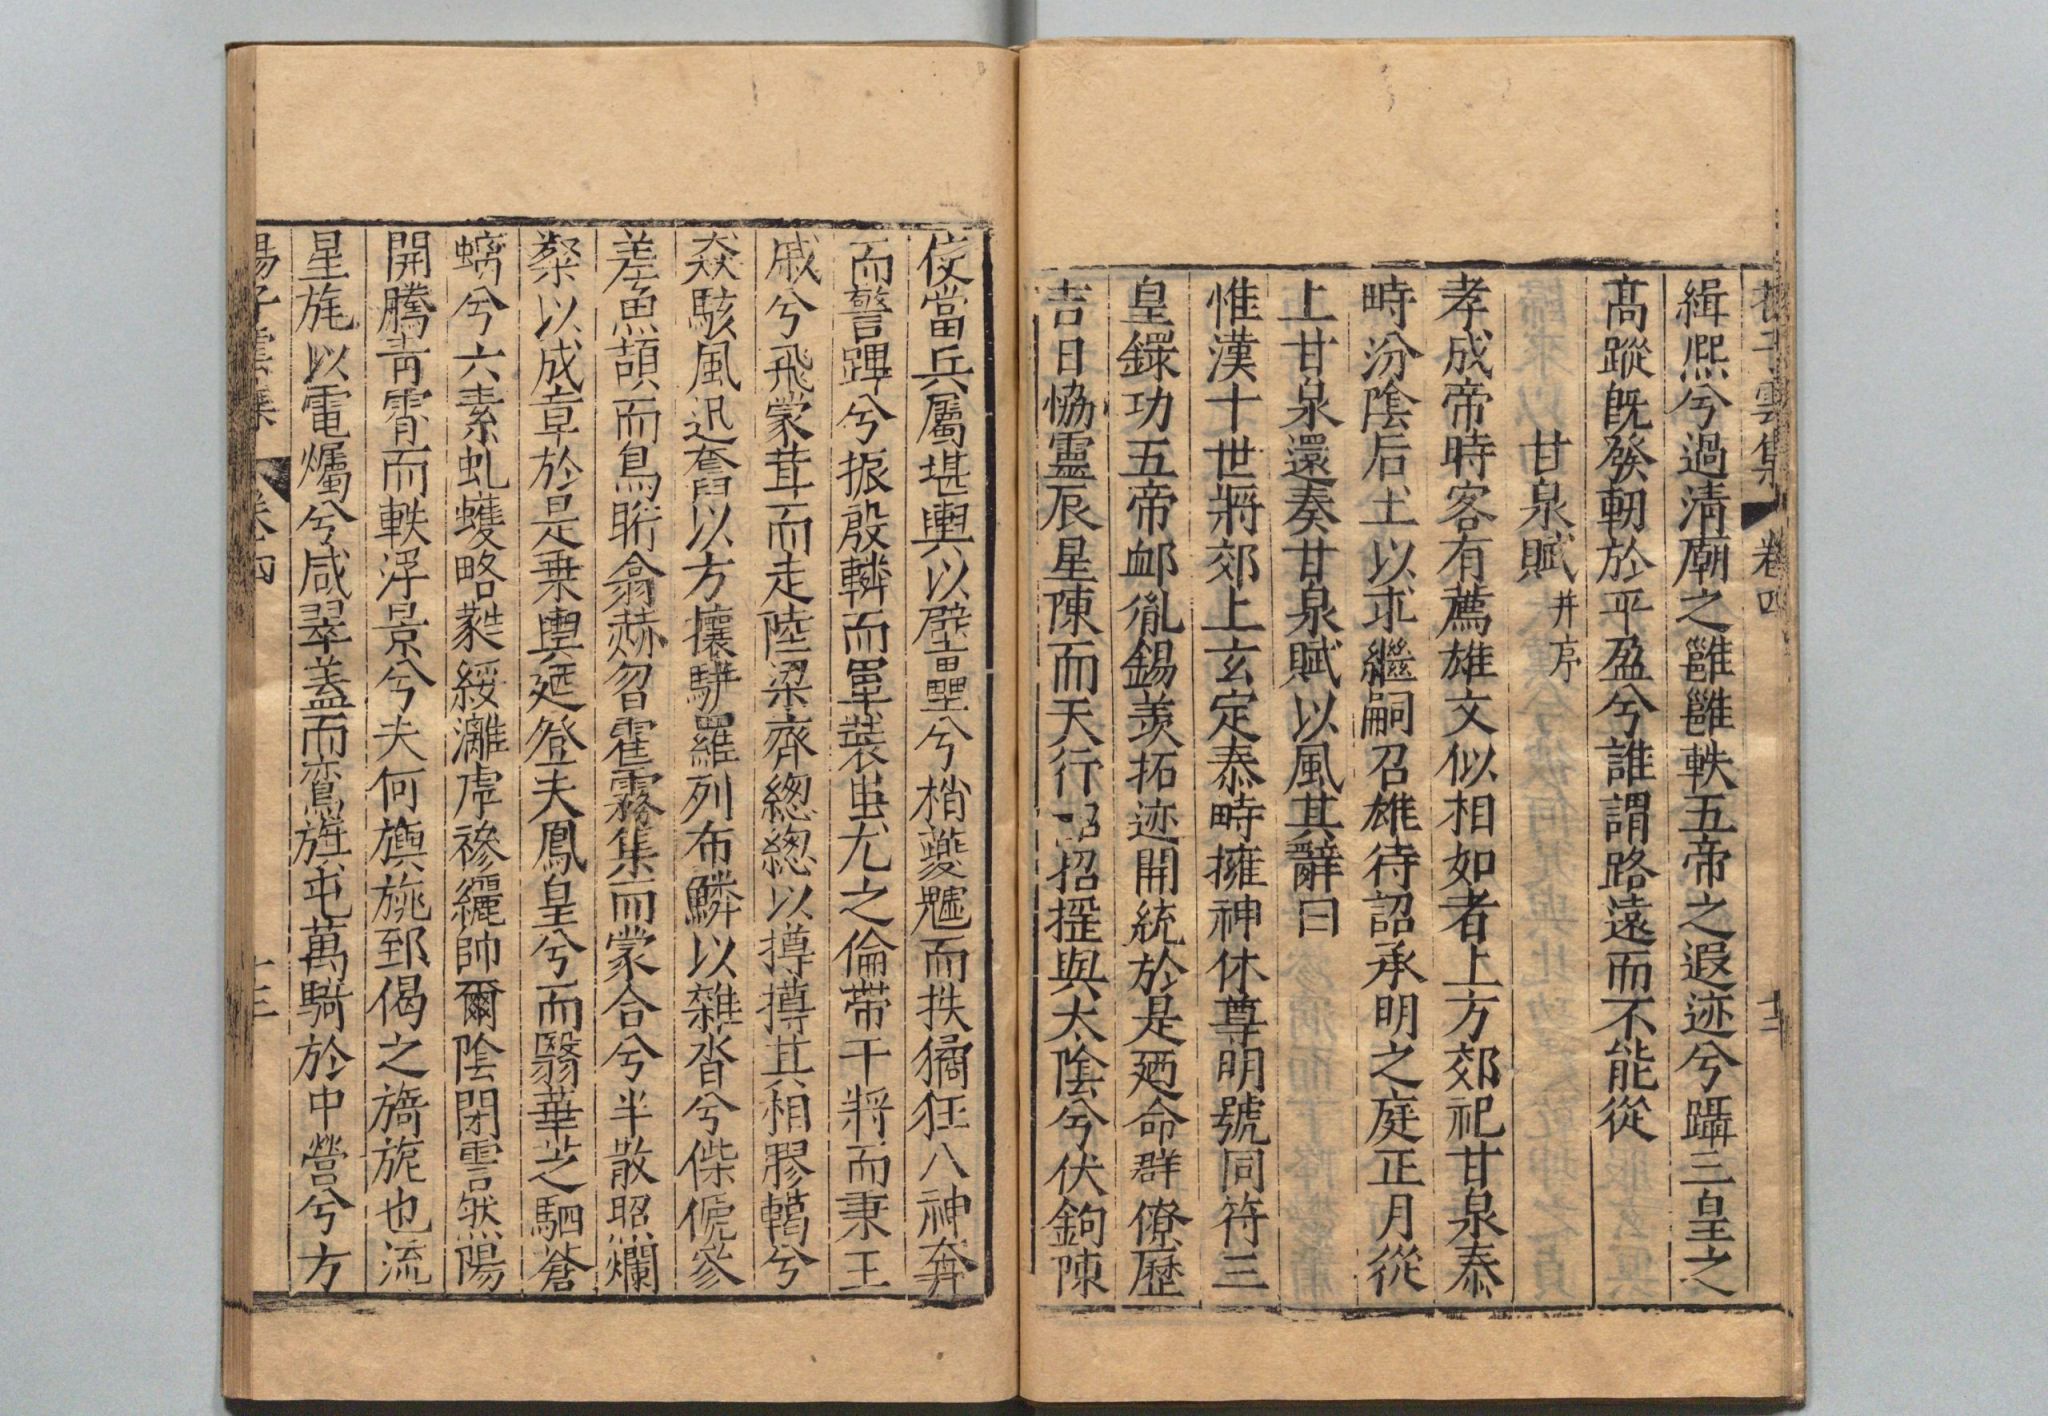 子雲集 卷四 十二
緝熈兮過清廟之雝雝軼五帝之遐迹兮躡三皇之
髙蹤既發軔於平盈兮誰謂路遠而不能從
甘泉賦 并序
孝成帝時客有薦雄文似相如者上方郊祀甘泉泰
畤汾隂后土以求繼嗣召雄待詔承明之庭正月從
上甘泉還奏甘泉賦以風其辭曰
惟漢十世將郊上玄定泰畤擁神休尊明號同符三
皇錄功五帝卹胤錫羨拓迹開統於是廼命群僚歷
吉日恊靈辰星陳而天行詔招揺與太隂兮伏鉤陳
使當兵屬堪輿以壁壘兮梢夔魖而抶獝狂八神奔
而警蹕兮振殷轔而軍裝蚩尤之倫帶干將而秉玉
戚兮飛蒙茸而走陸梁齊總總以撙撙其相膠轕兮
猋駭風迅奮以方攘駢羅列布鱗以雜沓兮傑傂參
差魚頡而鳥䀪翕赫曶霍霧集而蒙合兮半散照爛
粲以成章於是乗輿廼登夫鳳皇兮而翳華芝駟蒼
螭兮六素虬蠖略蕤綏灕虖襂纚帥爾隂閉霅然陽
開騰青霄而軼浮景兮夫何旟旐郅偈之旖旎也流
星旄以電爥兮咸翠蓋而鸞旗屯萬騎於中營兮方
子雲集 卷四 十三